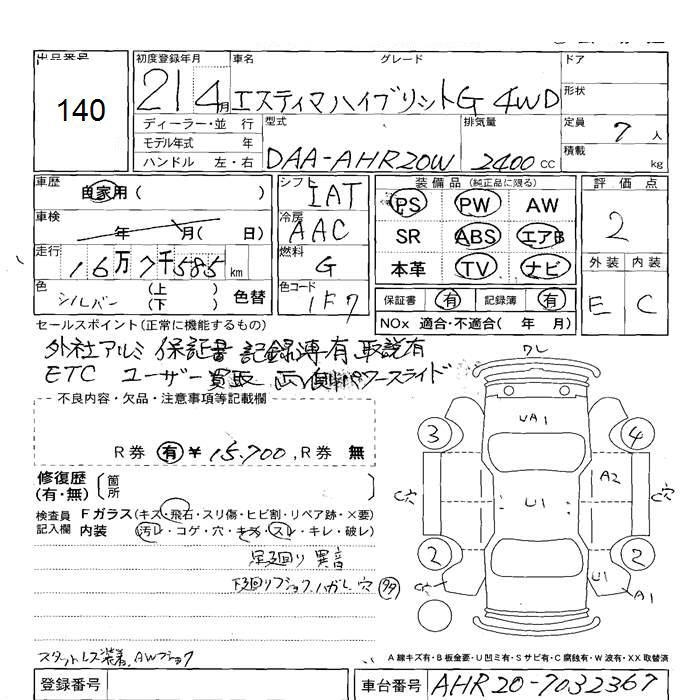 出品番号
140
初度登録年月
21 4月
車名
エスティマハイブリットG 4WD
グレード
ドア
形状
ディーラー・並 行
モデル年式 年
ハンドル 左・右
型式
DAA-AHR20W
排気量
2400 CC
定員 7 人
積載 kg
車歴
自家用 ( )
車検
年 月( 日)
走行
16万7千585 km
色
シルバー (上) (下) 色替
シフト
IAT
冷房
AAC
燃料
G
色コード
1F7
装備品 (純正品に限る)
PS PW AW
SR ABS エアB
本革 TV ナビ
保証書 有 記録簿 有
NOx 適合・不適合( 年 月)
評価点
2
外装 内装
E C
セールスポイント(正常に機能するもの)
外社アルミ 保証書 記録簿有 取説有
ETC ユーザー買取 両側パワースライド
不良内容・欠品・注意事項等記載欄
R券 有 ¥ 15,700 , R券 無
修復歴
(有・無)
箇所
検査員記入欄
Fガラス (キズ・飛石・スリ傷・ヒビ割・リペア跡・×要)
内装 (汚レ・コゲ・穴・キズ・スレ・キレ・破レ)
足廻り異音
下廻りフショク、ハガレ、穴 多
スタットレス装着、AWフショク
ワレ
UA1
3 4
A2
C穴 C穴
U1
2 2
C穴 U1 A1
A 線キズ有・B 板金要・U 凹ミ有・S サビ有・C 腐蝕有・W 波有・XX 取替済
登録番号
車台番号 AHR20-7032367